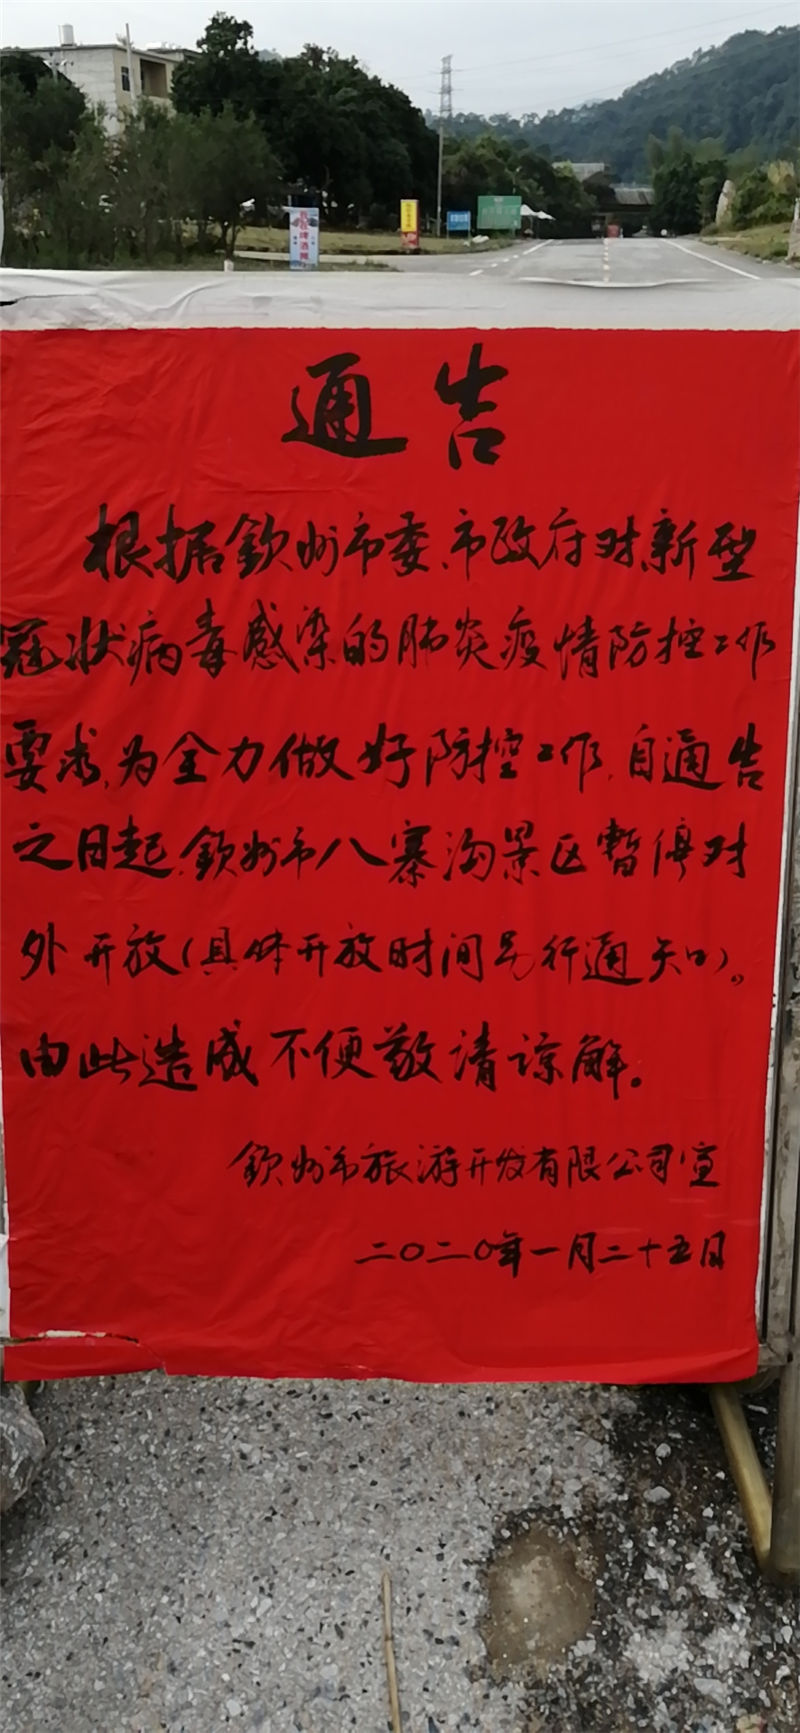 通告
根据钦州市委、市政府对新型
冠状病毒感染的肺炎疫情防控工作
要求,为全力做好防控工作,自通告
之日起,钦州市八寨沟景区暂停对
外开放(具体开放时间另行通知)。
由此造成不便敬请谅解。
钦州市旅游开发有限公司宣
二〇二〇年一月二十五日